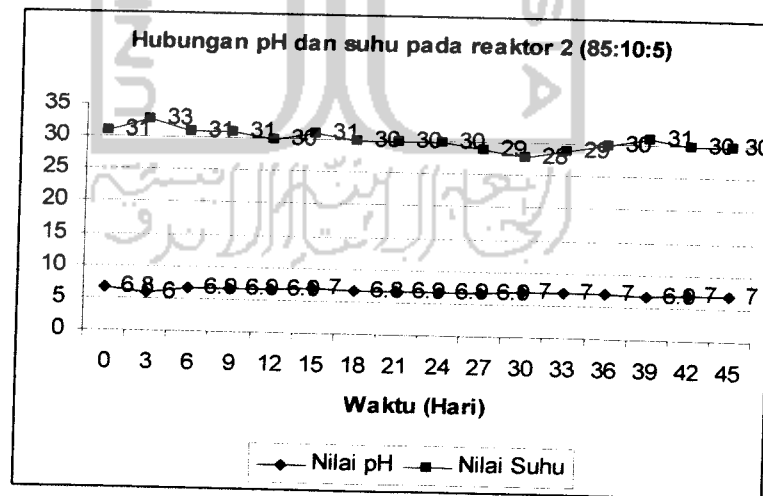 Hubungan pH dan suhu pada reaktor 2 (85:10:5)
35
30
25
20
15
10
5
0
31 33 31 31 30 31 30 30 30 29 28 29 30 31 30 30
6.8 6 6.9 6.9 6.9 7 6.8 6.9 6.9 6.9 7 7 7 6.9 7 7
0 3 6 9 12 15 18 21 24 27 30 33 36 39 42 45
Waktu (Hari)
Nilai pH Nilai Suhu